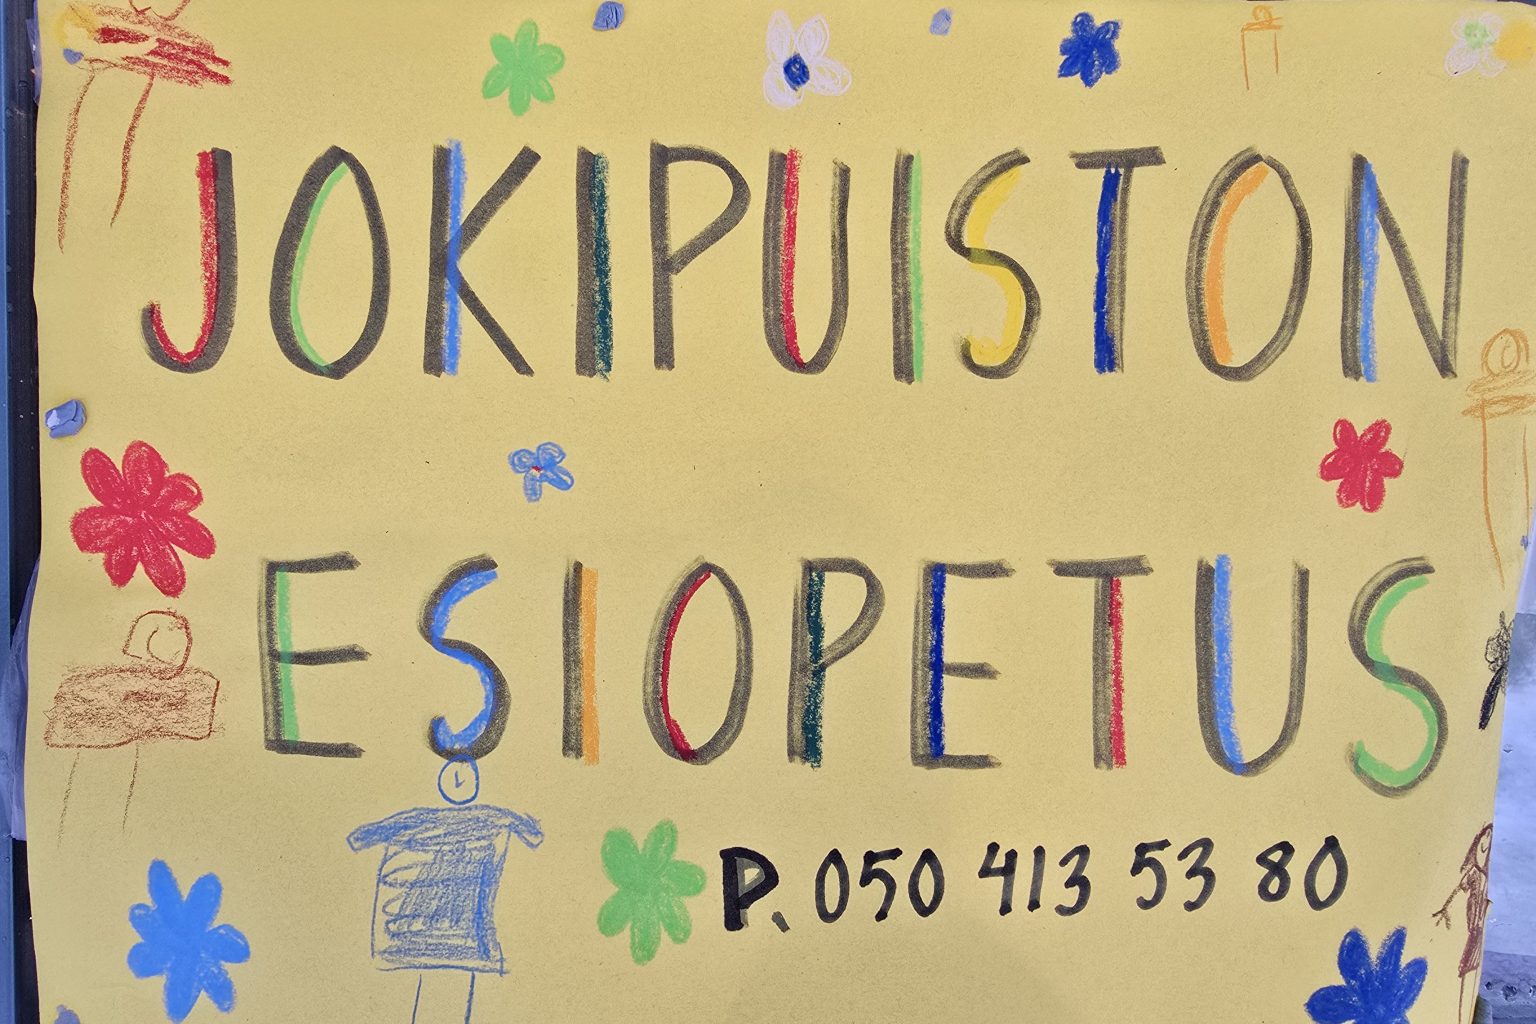 JOKIPUISTON
ESIOPETUS
P. 050 413 53 80